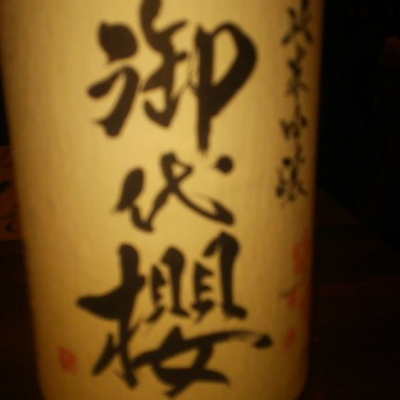 純米吟醸
御代櫻